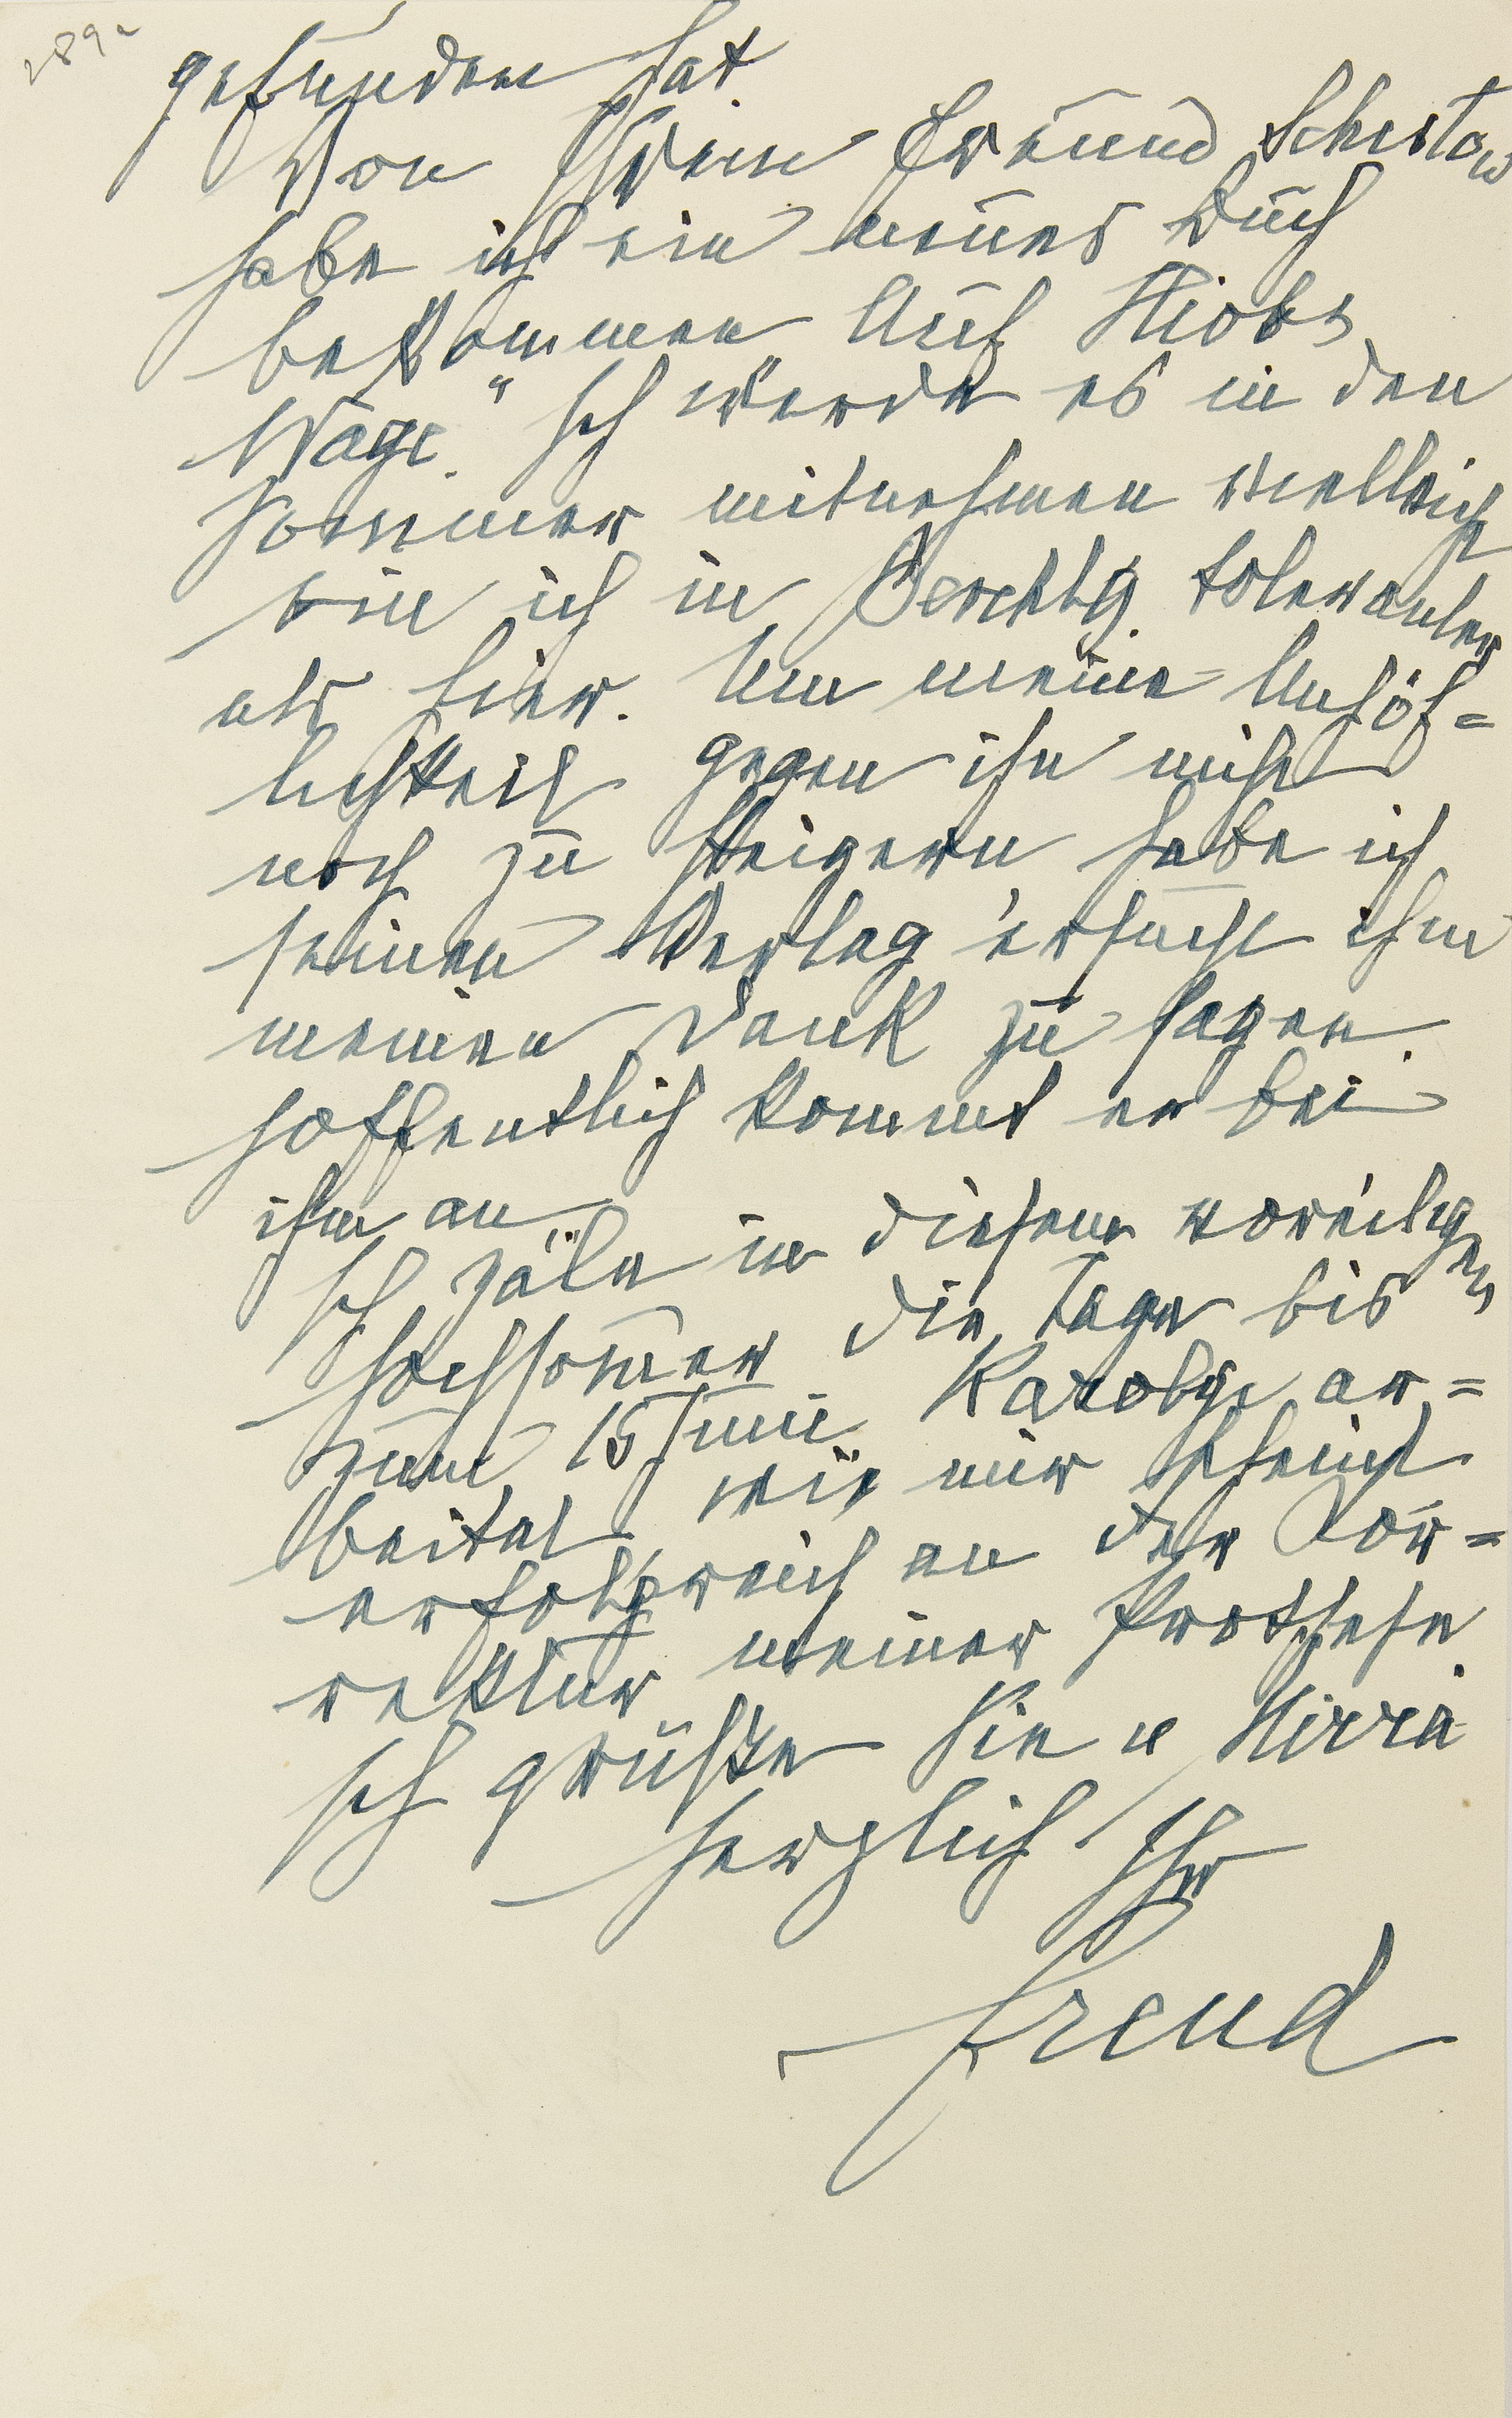 289a
gefunden hat.
Von Ihrem Freund Schestow
habe ich ein neues Buch
bekommen Auf Hiobs
Wage." Ich werde es in den
Sommer mitnehmen vielleicht
bin ich in Berchtg. toleranter
als hier. Um meine Unhöf=
lichkeit gegen ihn nicht
noch zu steigern habe ich
seinen Verlag ersucht ihm
meinen Dank zu sagen.
Hoffentlich kommt er bei
ihm an
Ich zäle in diesem voreiligen
Hochsommer die Tage bis
zum 15 Juni. Karolyi ar=
beitet, wie mir scheint
erfolgreich an der Kor=
rektur meiner Prothese.
Ich grüße Sie u Mirra
herzlich Ihr
Freud